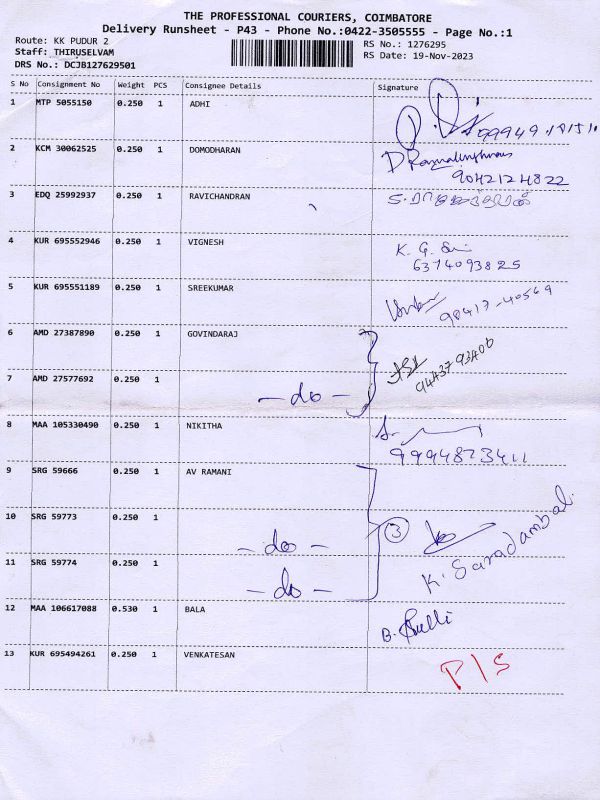 THE PROFESSIONAL COURIERS, COIMBATORE
Delivery Runsheet - P43 - Phone No.:0422-3505555 - Page No.:1
Route: KK PUDUR 2
RS No.: 1276295
Staff: THIRUSELVAM
RS Date: 19-Nov-2023
DRS No.: DCJB127629501
S No Consignment No Weight PCS Consignee Details Signature
1 MTP 5055150 0.250 1 ADHI
2 KCM 30062525 0.250 1 DOMODHARAN
9042124822
3 EDQ 25992937 0.250 1 RAVICHANDRAN
4 KUR 695552946 0.250 1 VIGNESH K. G.
6374093825
5 KUR 695551189 0.250 1 SREEKUMAR
98417-40569
6 AMD 27387890 0.250 1 GOVINDARAJ
7 AMD 27577692 0.250 1
- do -
8 MAA 105330490 0.250 1 NIKITHA
9994823411
9 SRG 59666 0.250 1 AV RAMANI
10 SRG 59773 0.250 1 3
- do -
K. Saradambal
11 SRG 59774 0.250 1
- do -
12 MAA 106617088 0.530 1 BALA B.
13 KUR 695494261 0.250 1 VENKATESAN P/S